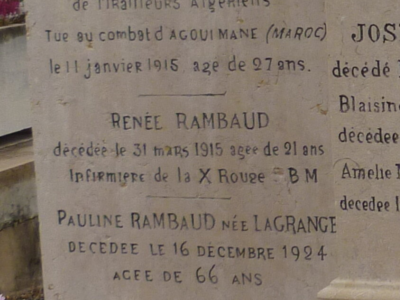 de Tirailleurs Algeriens
Tue au combat d'AGOUIMANE (MAROC)
le 11 janvier 1915, age de 27 ans.
RENÉE RAMBAUD
décédée le 31 mars 1915 agee de 21 ans
INFIRMIERE de la X ROUGE - B M
PAULINE RAMBAUD NÉE LAGRANGE
DECEDEE LE 16 DECEMBRE 1924
AGEE DE 66 ANS
décédé
Blaisin
décédée
Amelie
decedee